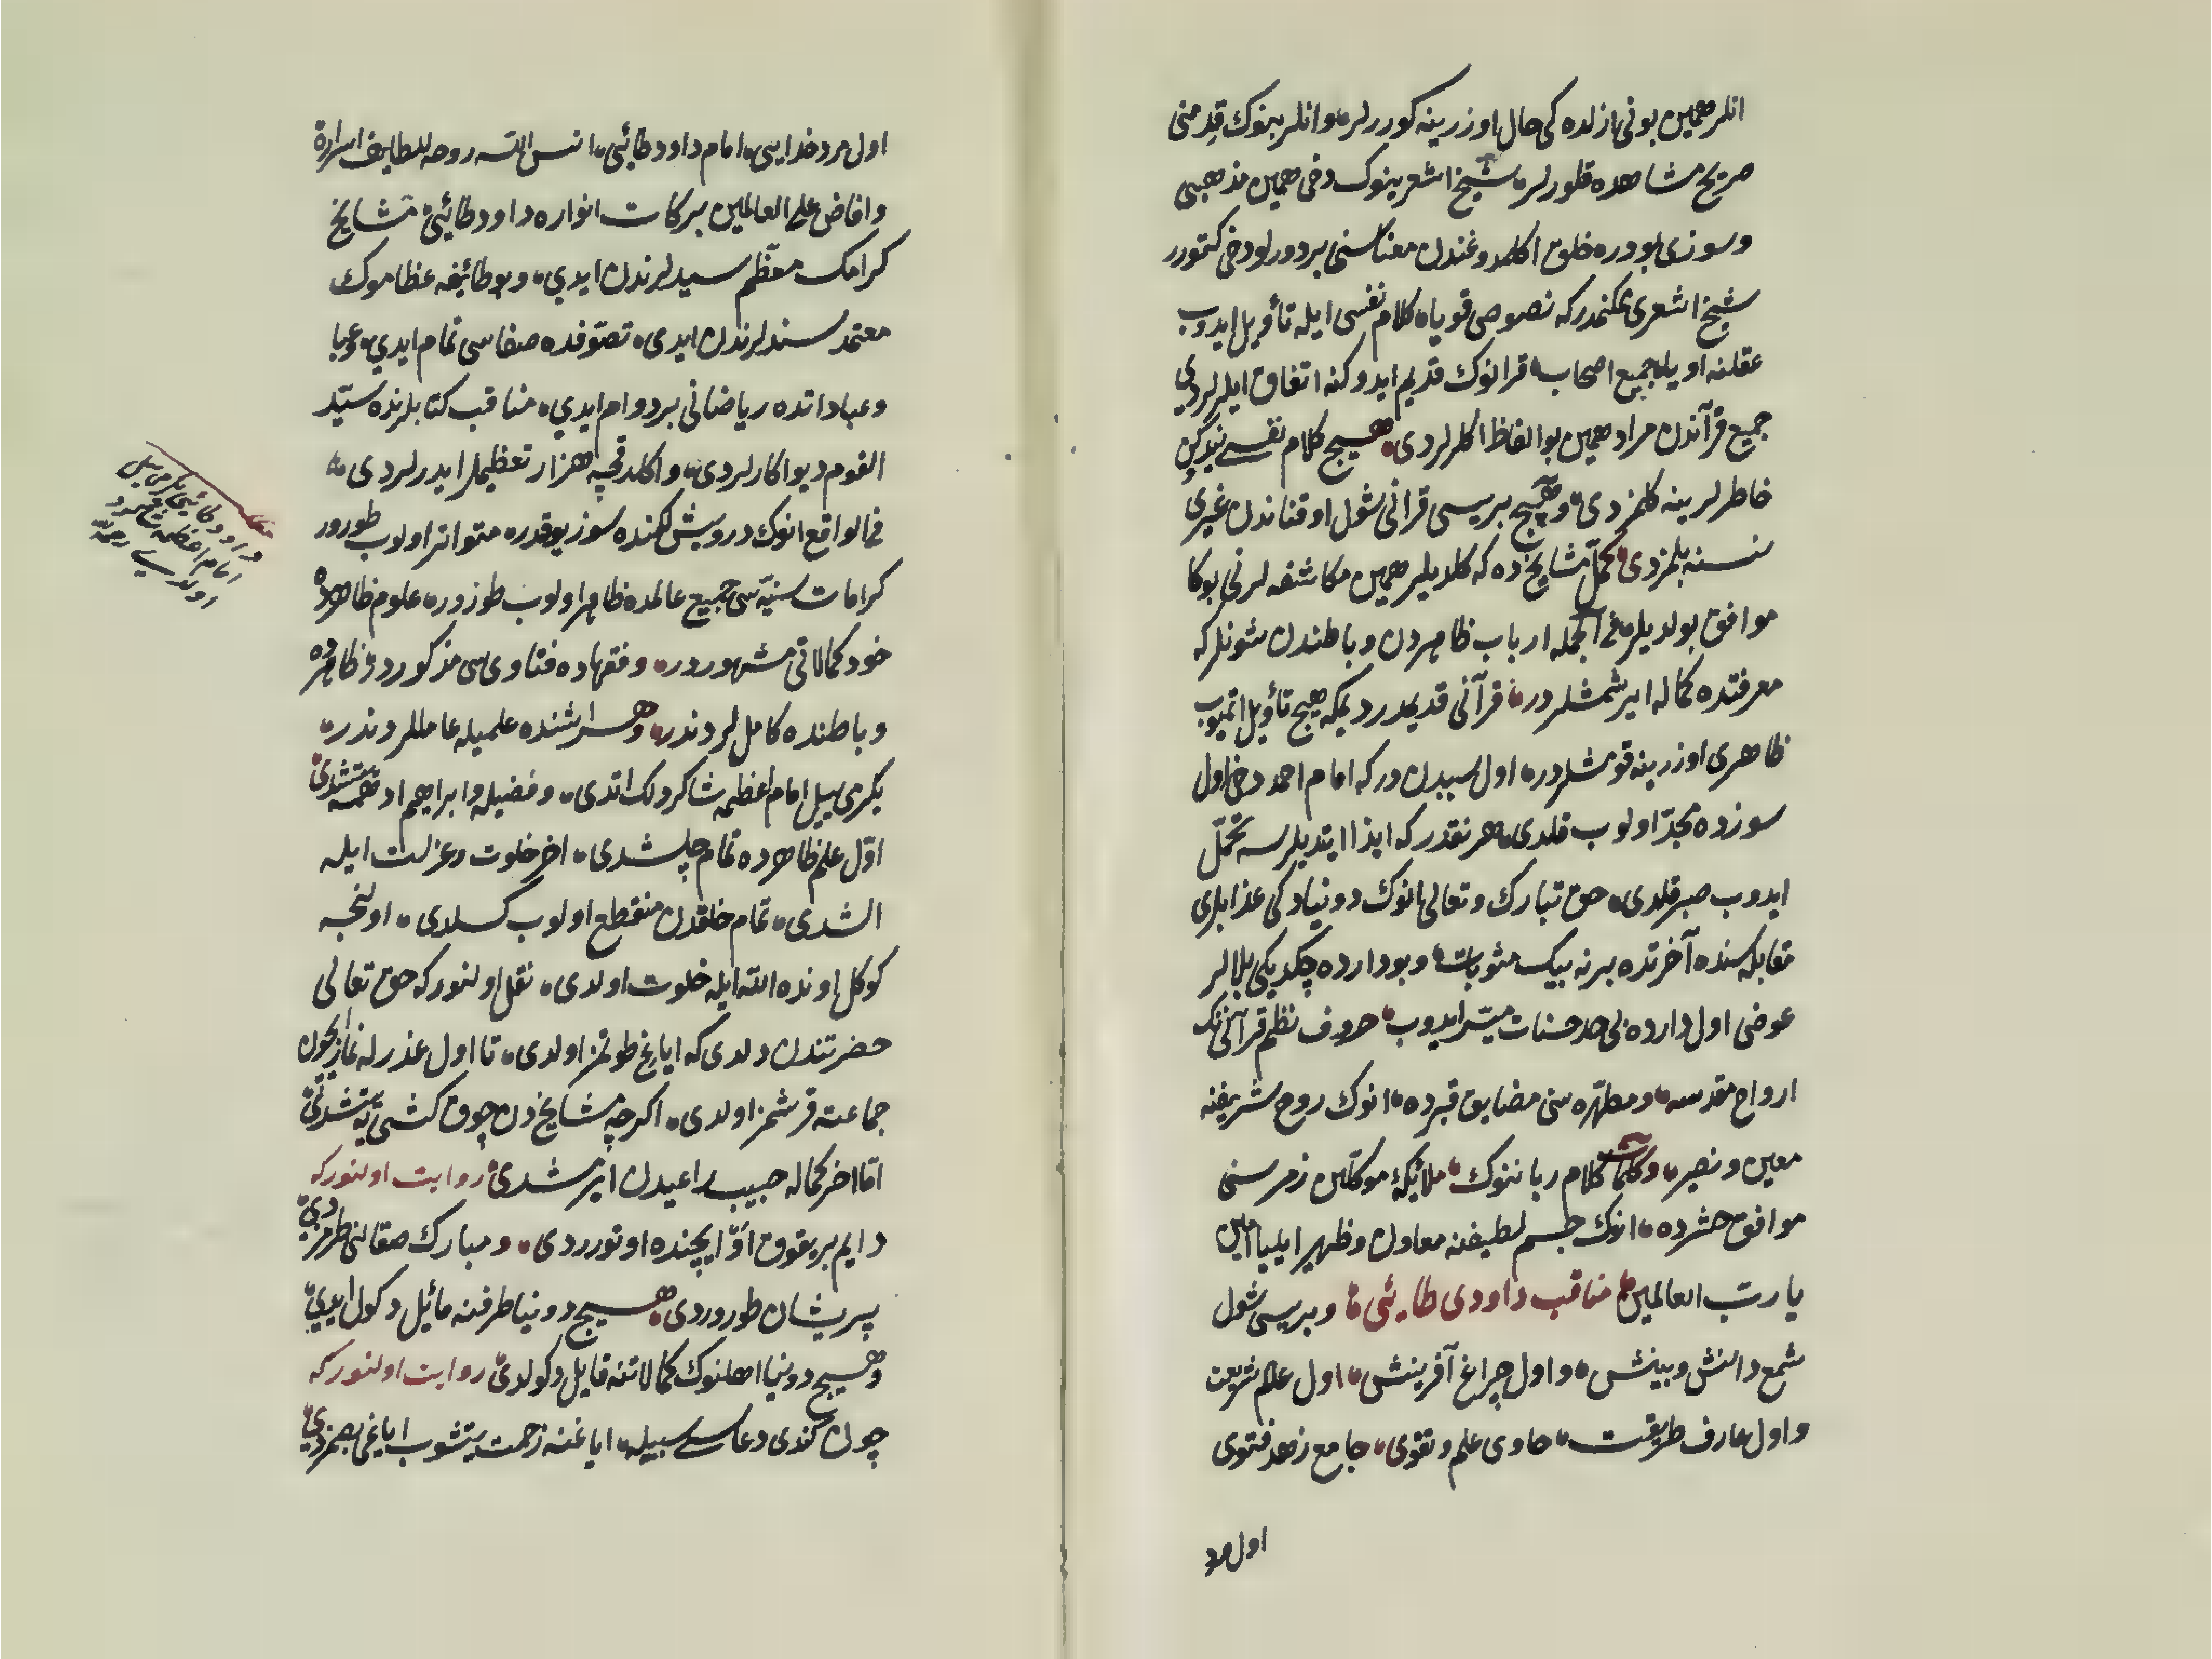 انلر همین بونی ازلده کی حال اوزرینه کوررلر وانلر بونوك قدمنی
صریح مشاهده قلورلر شیخ اشعرینوك دخی همین مذهبی
وسوزی بودر خلق اکلمدوغندن معناسنی بر دورلو دخی کتورر
شیخ اشعری ممکندرکه نصوصی قویا کلام نفسی ایله تأویل ایدوب
عقلنه اویله جمیع اصحاب قرانوك قدیم ایدوکنه اتفاق ایلرلردی
جمیع قرآندن مراد همین بو الفاظ اکلرلردی هیچ کلام نفسی
خاطرلرینه کلمزدی وهیچ بریسی قرانی شول اوقناندن غیری
نسنه بلمزدی مشایخ ده که کلدیلر همین مکاشفه لرنی بوکا
موافق بولدیلر فی الجمله ارباب ظاهردن وباطندن شونلرکه
معرفتده کماله ایرشمشلردر قرآنی قدیمدر دیمکه هیچ تأویل اتمیوب
ظاهری اوزرینه قومشلردر اول سببدن درکه امام احمد دخی اول
سوزده مجدّ اولوب قلدی هر نقدر که ایذا ایتدیلرسه تحمّل
ایدوب صبر قلدی حق تبارك وتعالی انوك دونیادکی عذابلری
مقابله سنده آخرتده برنه بیك مثوبات وبو دارده چکدیکی بلالر
عوضی اول دارده بی حد حسنات میسّر ایدوب حروف نظم قرآنی نك
ارواح مقدسه ومطهّره سنی مضایق قبرده انوك روح شریفنه
معین ونصیر وکلمات کلام ربانینوك ملائکهٔ موکلین زمرسنی
موافق حشرده انوك جسم لطیفنه معاون وظهیر ایلیا امین
یا ربّ العالمین مناقب داودی طایئی وبریسی شول
شمع دانش وبینش واول چراغ آفرینش اول عالم شریعت
واول عارف طریقت حاوی علم وتقوی جامع زهد فتوی
اول مرد
اول مرد خدایی امام داود طائیی انس الله روحه بلطایف اسراره
وافاض علی العالمین برکات انواره داود طائیی مشایخ
کرامك معظّم سیدلرندن ایدی وبو طائیفه عظاموك
معتمد سندلرندن ایدی تصوّفده صفاسی تمام ایدی
وعباداتده ریاضاتی بر دوام ایدی مناقب کتابلرنده سیّد
القوم دیو اکارلردی واکلدقچه هزار تعظیملر ایدرلردی
فی الواقع انوك درویشلکنده سوز یوقدر متواتر اولوب طورور
کرامات سنیّه سی جمیع عالمده ظاهر اولوب طورور علوم ظاهرده
خود کمالاتی مشهوردر وفقهاده فتاویسی مذکوردر ظاهرده
وباطنده کامللردندر وهر اشنده علمیله عامللردندر
یکرمی ییل امام اعظمه شاکردلك اتدی وفضیله وابراهیم ادهمه یتشدی
اوّل علم ظاهرده تمام چلشدی اخر خلوت وعزلت ایله
الشدی تمام خلقدن منقطع اولوب کسلدی اولنجه
کوکل اونده الله ایله خلوت اولدی نقل اولنورکه حق تعالی
حضرتندن دلدی که ایاغی طوتمز اولدی تا اول عذرله نماز ایچون
جماعته قرشمز اولدی اکرچه مشایخ دن چوق کشی یه یتشدی
امّا اخر کماله حبیب راعیدن ایرشدی روایت اولنورکه
دایم بر یقوق او ایچنده اوتورردی ومبارك صقالنی طرمزدی
پریشان طوروردی هیچ دونیا طرفنه مائیل دکول ایدی
وهیچ دونیا اهلنوك کمالاتنه قایل دکولدی روایت اولنورکه
چون کندی دعاسی سبیله ایاغنه زحمت یتشوب ایاغی بصمزدی
داود طائی یکرمی ییل
امام اعظمه شاکرد
اولدی